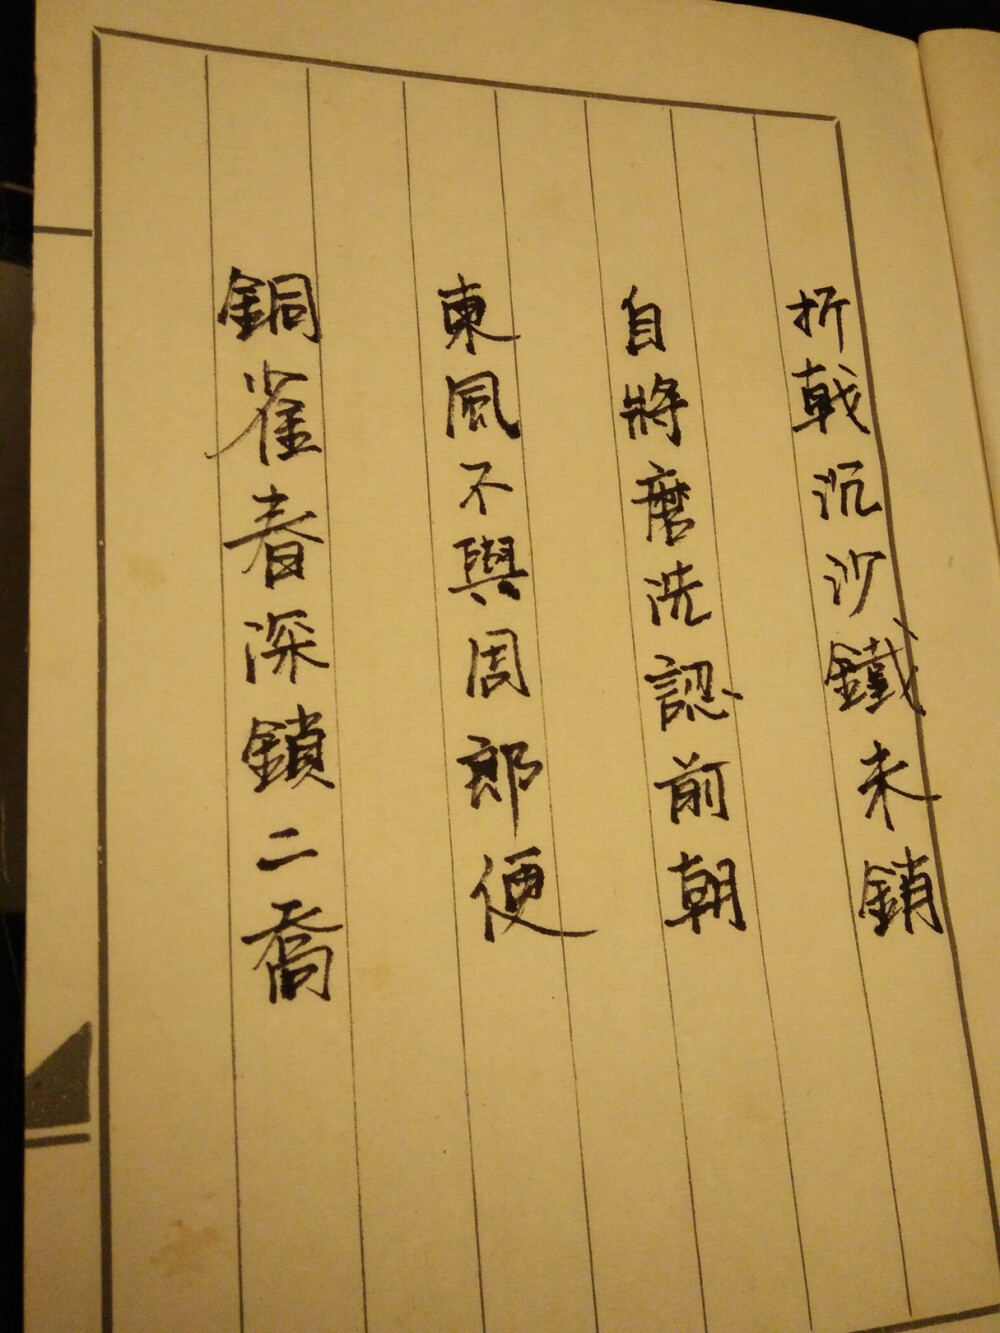 折戟沉沙鐵未銷
自將磨洗認前朝
東風不與周郎便
銅雀春深鎖二喬